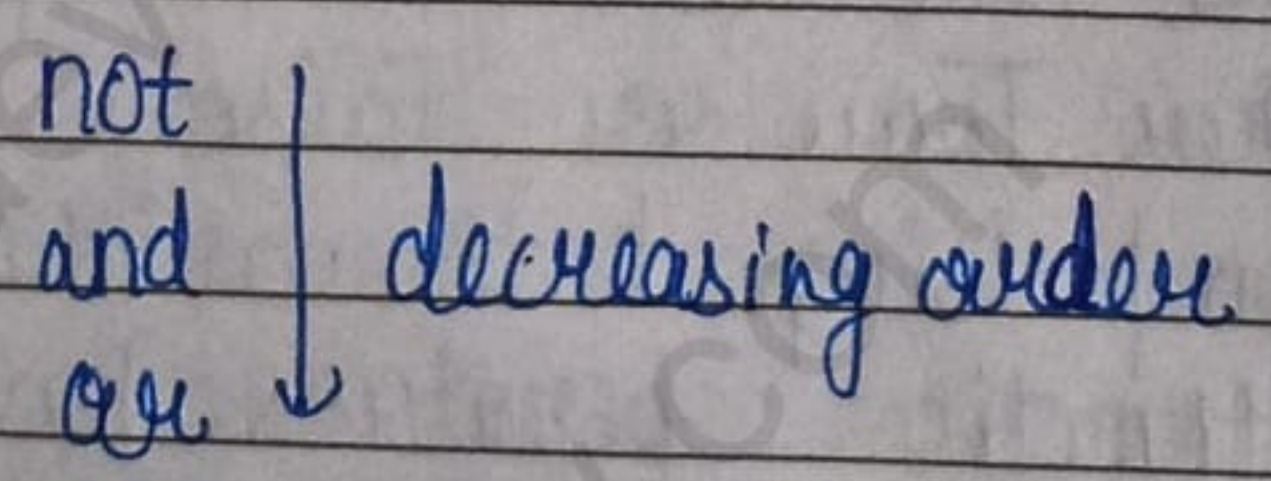 not
and
decreasing order
or